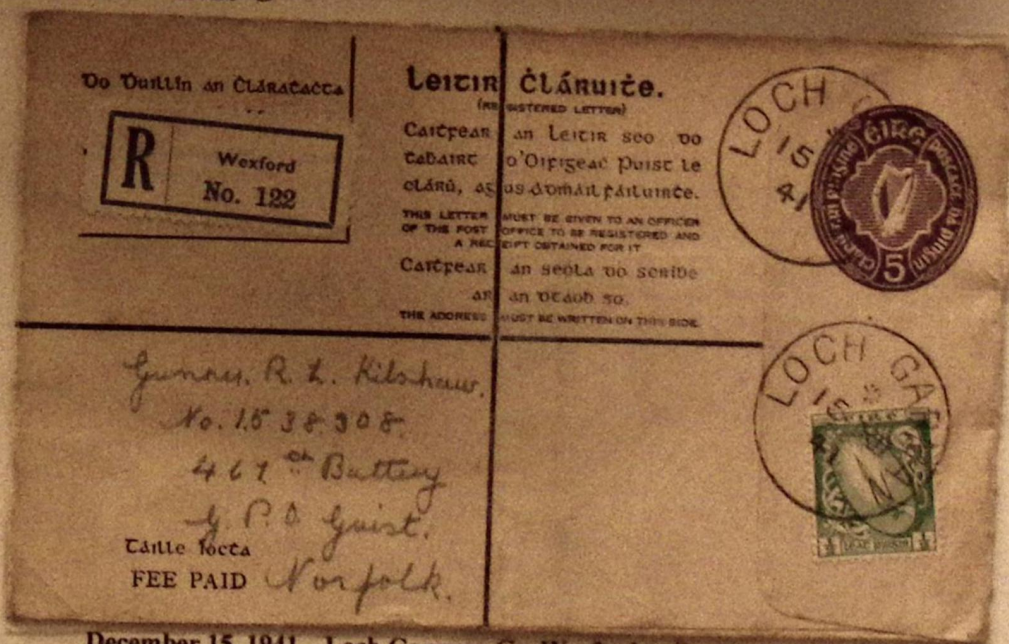 Do Ḋuillín an Ċláraṫaċta
R
Wexford
No. 122
Leitir Ċláruiṫe.
(REGISTERED LETTER)
Caiṫfear an Leitir seo do
ṫaḃairt d'Oifigeaċ Puist le
clárú, agus admáil fáiluiṫe.
THIS LETTER MUST BE GIVEN TO AN OFFICER
OF THE POST OFFICE TO BE REGISTERED AND
A RECEIPT OBTAINED FOR IT
Caiṫfear an seola do scríḃe
ar an dtaoḃ so.
THE ADDRESS MUST BE WRITTEN ON THIS SIDE.
LOCH G
15
41
éire
5
LOCH GA
15
41
Gunner. R. L. Kilshaw.
No. 1538908.
467th Battery
G. P. O Guist.
Norfolk.
Táille íocta
FEE PAID
December 15, 1941